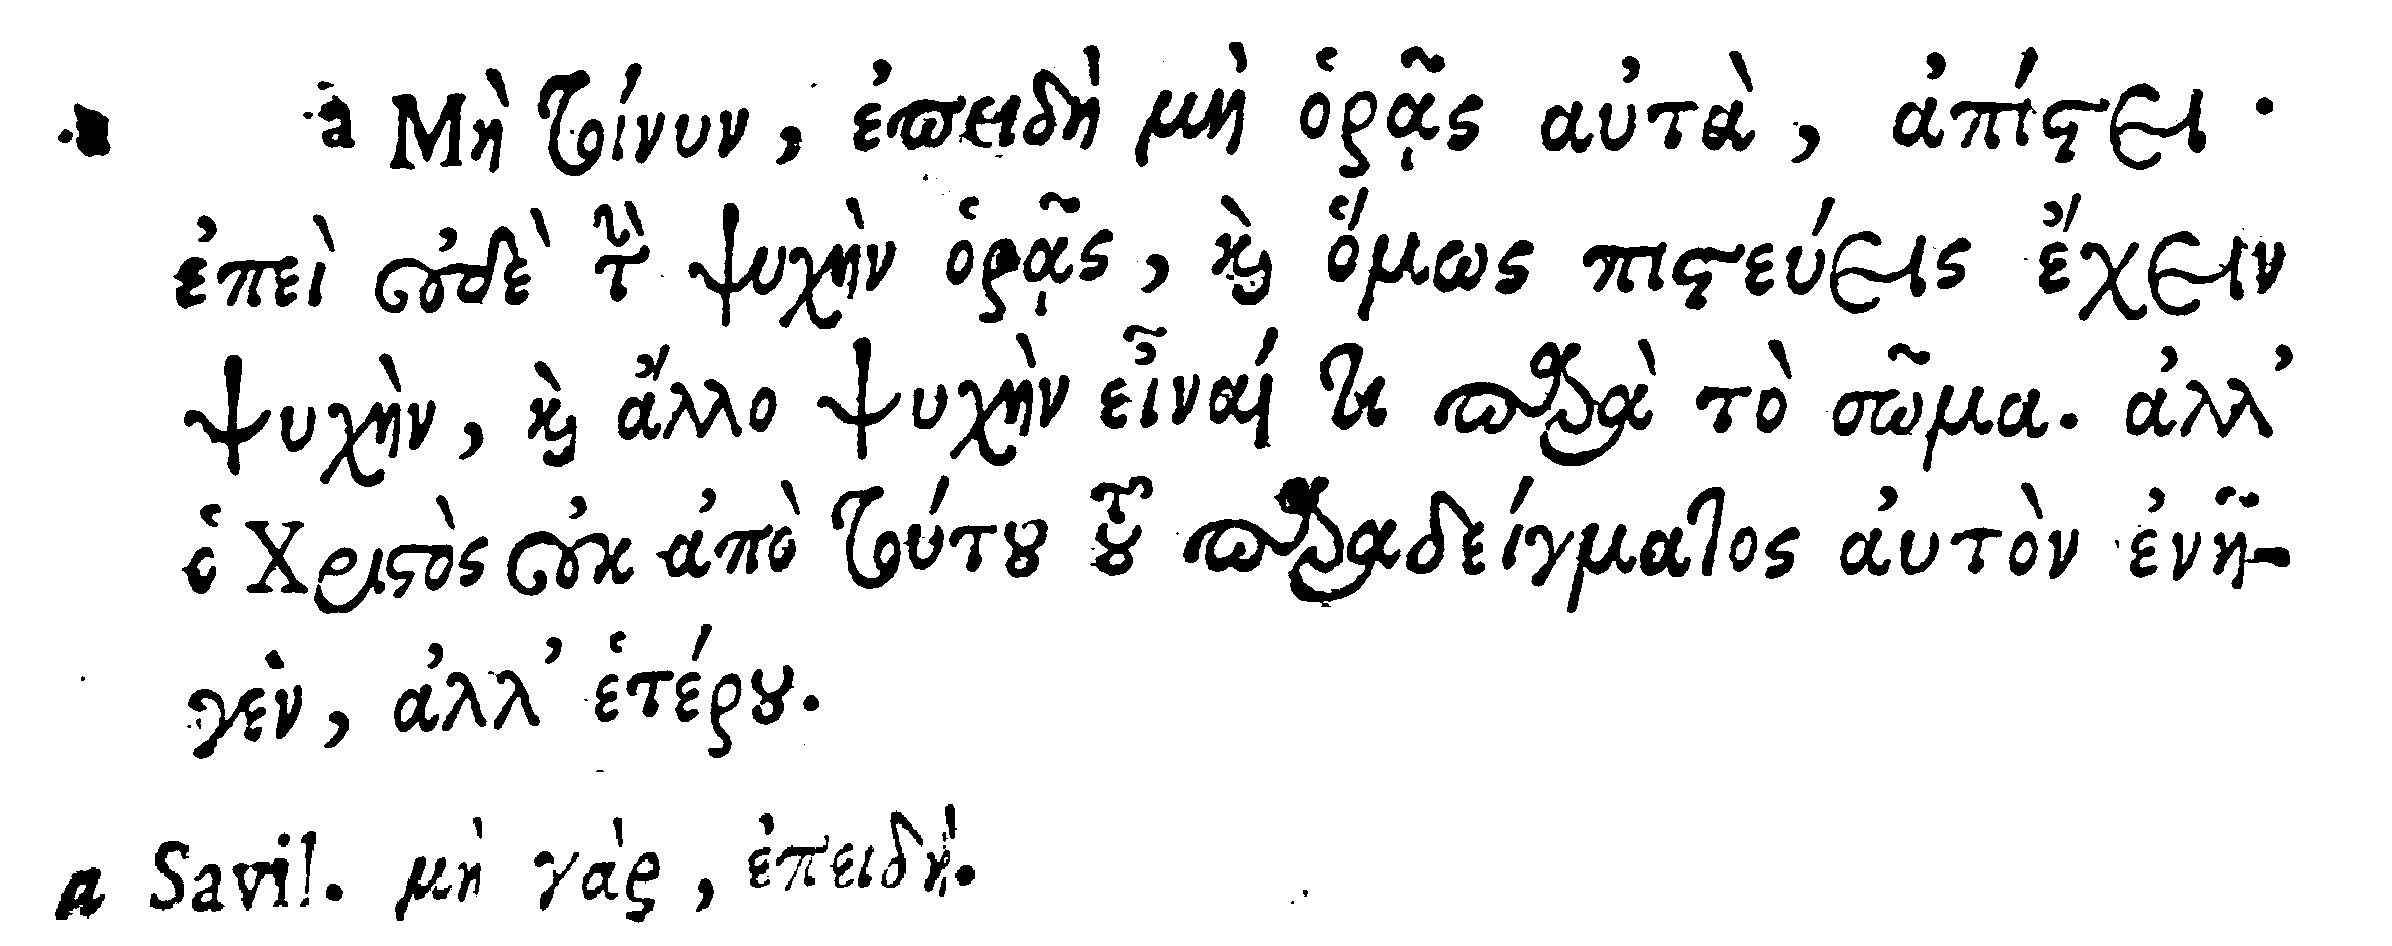 a Μὴ τοίνυν, ἐπειδὴ μὴ ὁρᾷς αὐτὰ, ἀπίστει·
ἐπεὶ οὐδὲ τὴν ψυχὴν ὁρᾷς, καὶ ὅμως πιστεύεις ἔχειν
ψυχὴν, καὶ ἄλλο ψυχὴν εἶναί τι παρὰ τὸ σῶμα. ἀλλ'
ὁ Χριστὸς οὐκ ἀπὸ τούτου τοῦ παραδείγματος αὐτὸν ἐνῆ-
γεν, ἀλλ' ἑτέρου.
a Savil. μὴ γὰρ, ἐπειδή.